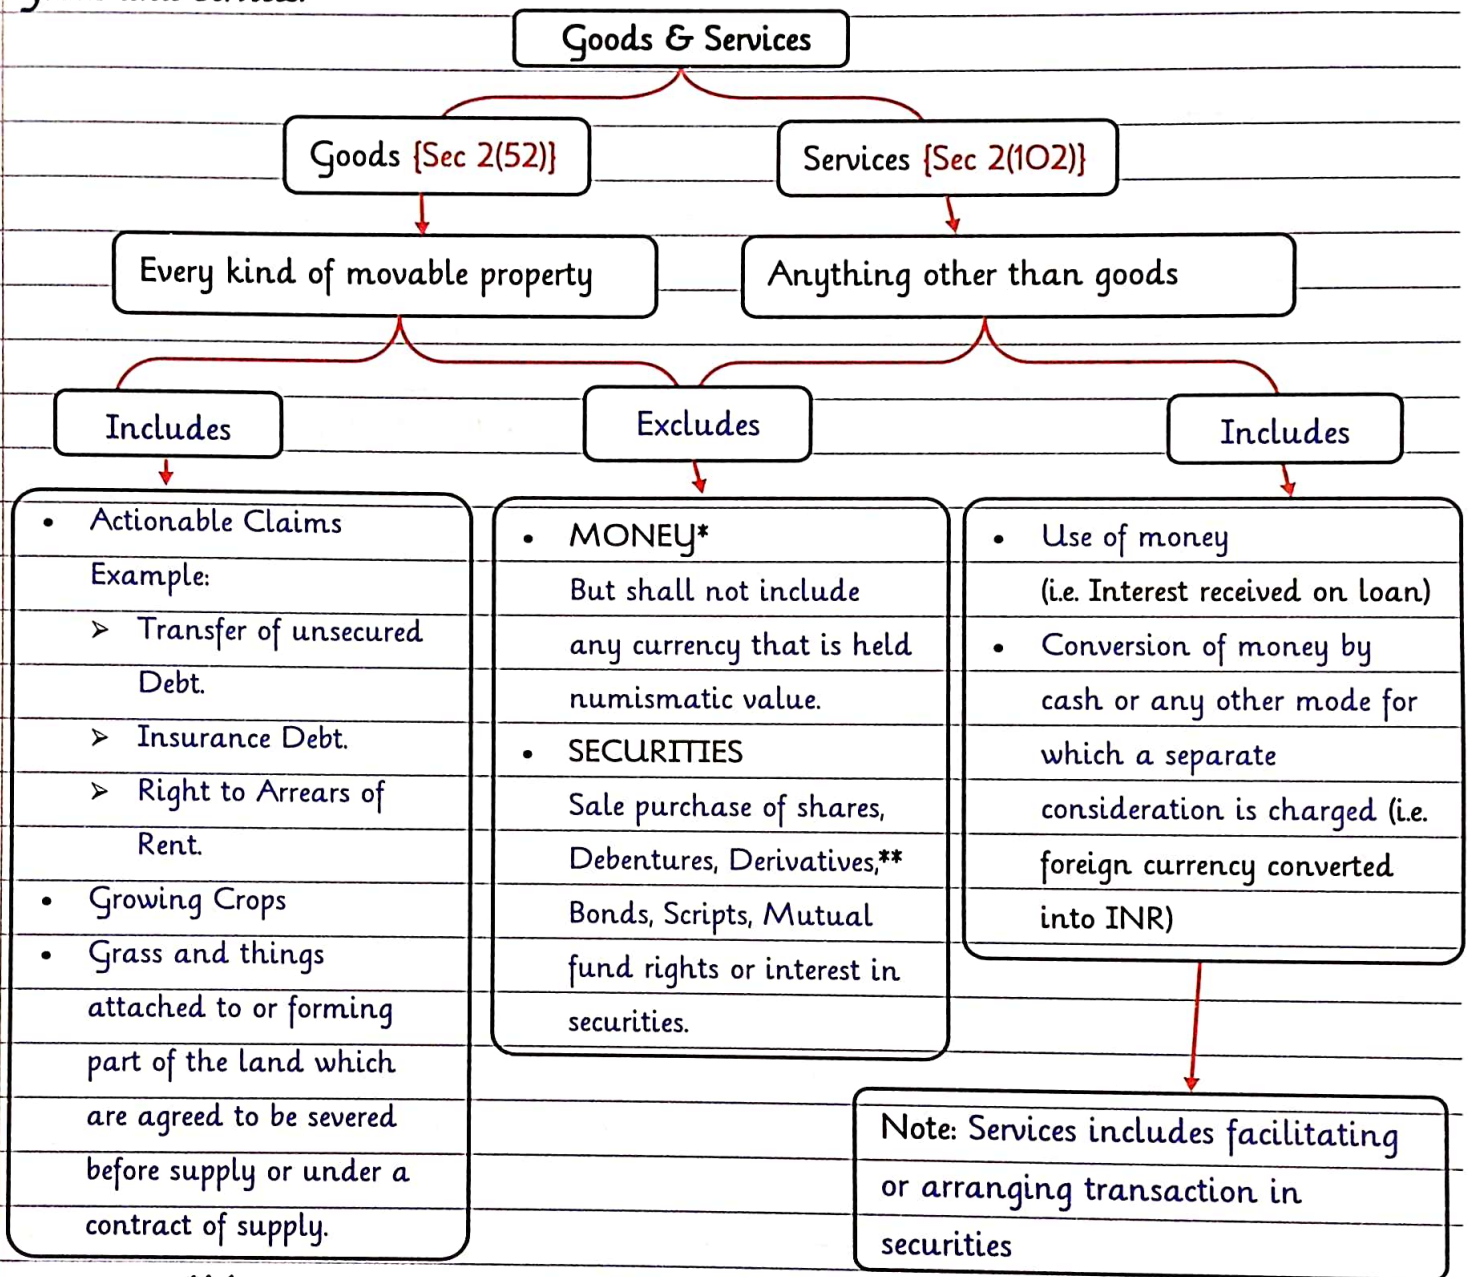 Goods & Services
Goods {Sec 2(52)}
Services {Sec 2(102)}
Every kind of movable property
Anything other than goods
Includes
Excludes
Includes
• Actionable Claims
Example:
➢ Transfer of unsecured
Debt.
➢ Insurance Debt.
➢ Right to Arrears of
Rent.
• Growing Crops
• Grass and things
attached to or forming
part of the land which
are agreed to be severed
before supply or under a
contract of supply.
• MONEY*
But shall not include
any currency that is held
numismatic value.
• SECURITIES
Sale purchase of shares,
Debentures, Derivatives,**
Bonds, Scripts, Mutual
fund rights or interest in
securities.
• Use of money
(i.e. Interest received on loan)
• Conversion of money by
cash or any other mode for
which a separate
consideration is charged (i.e.
foreign currency converted
into INR)
Note: Services includes facilitating
or arranging transaction in
securities